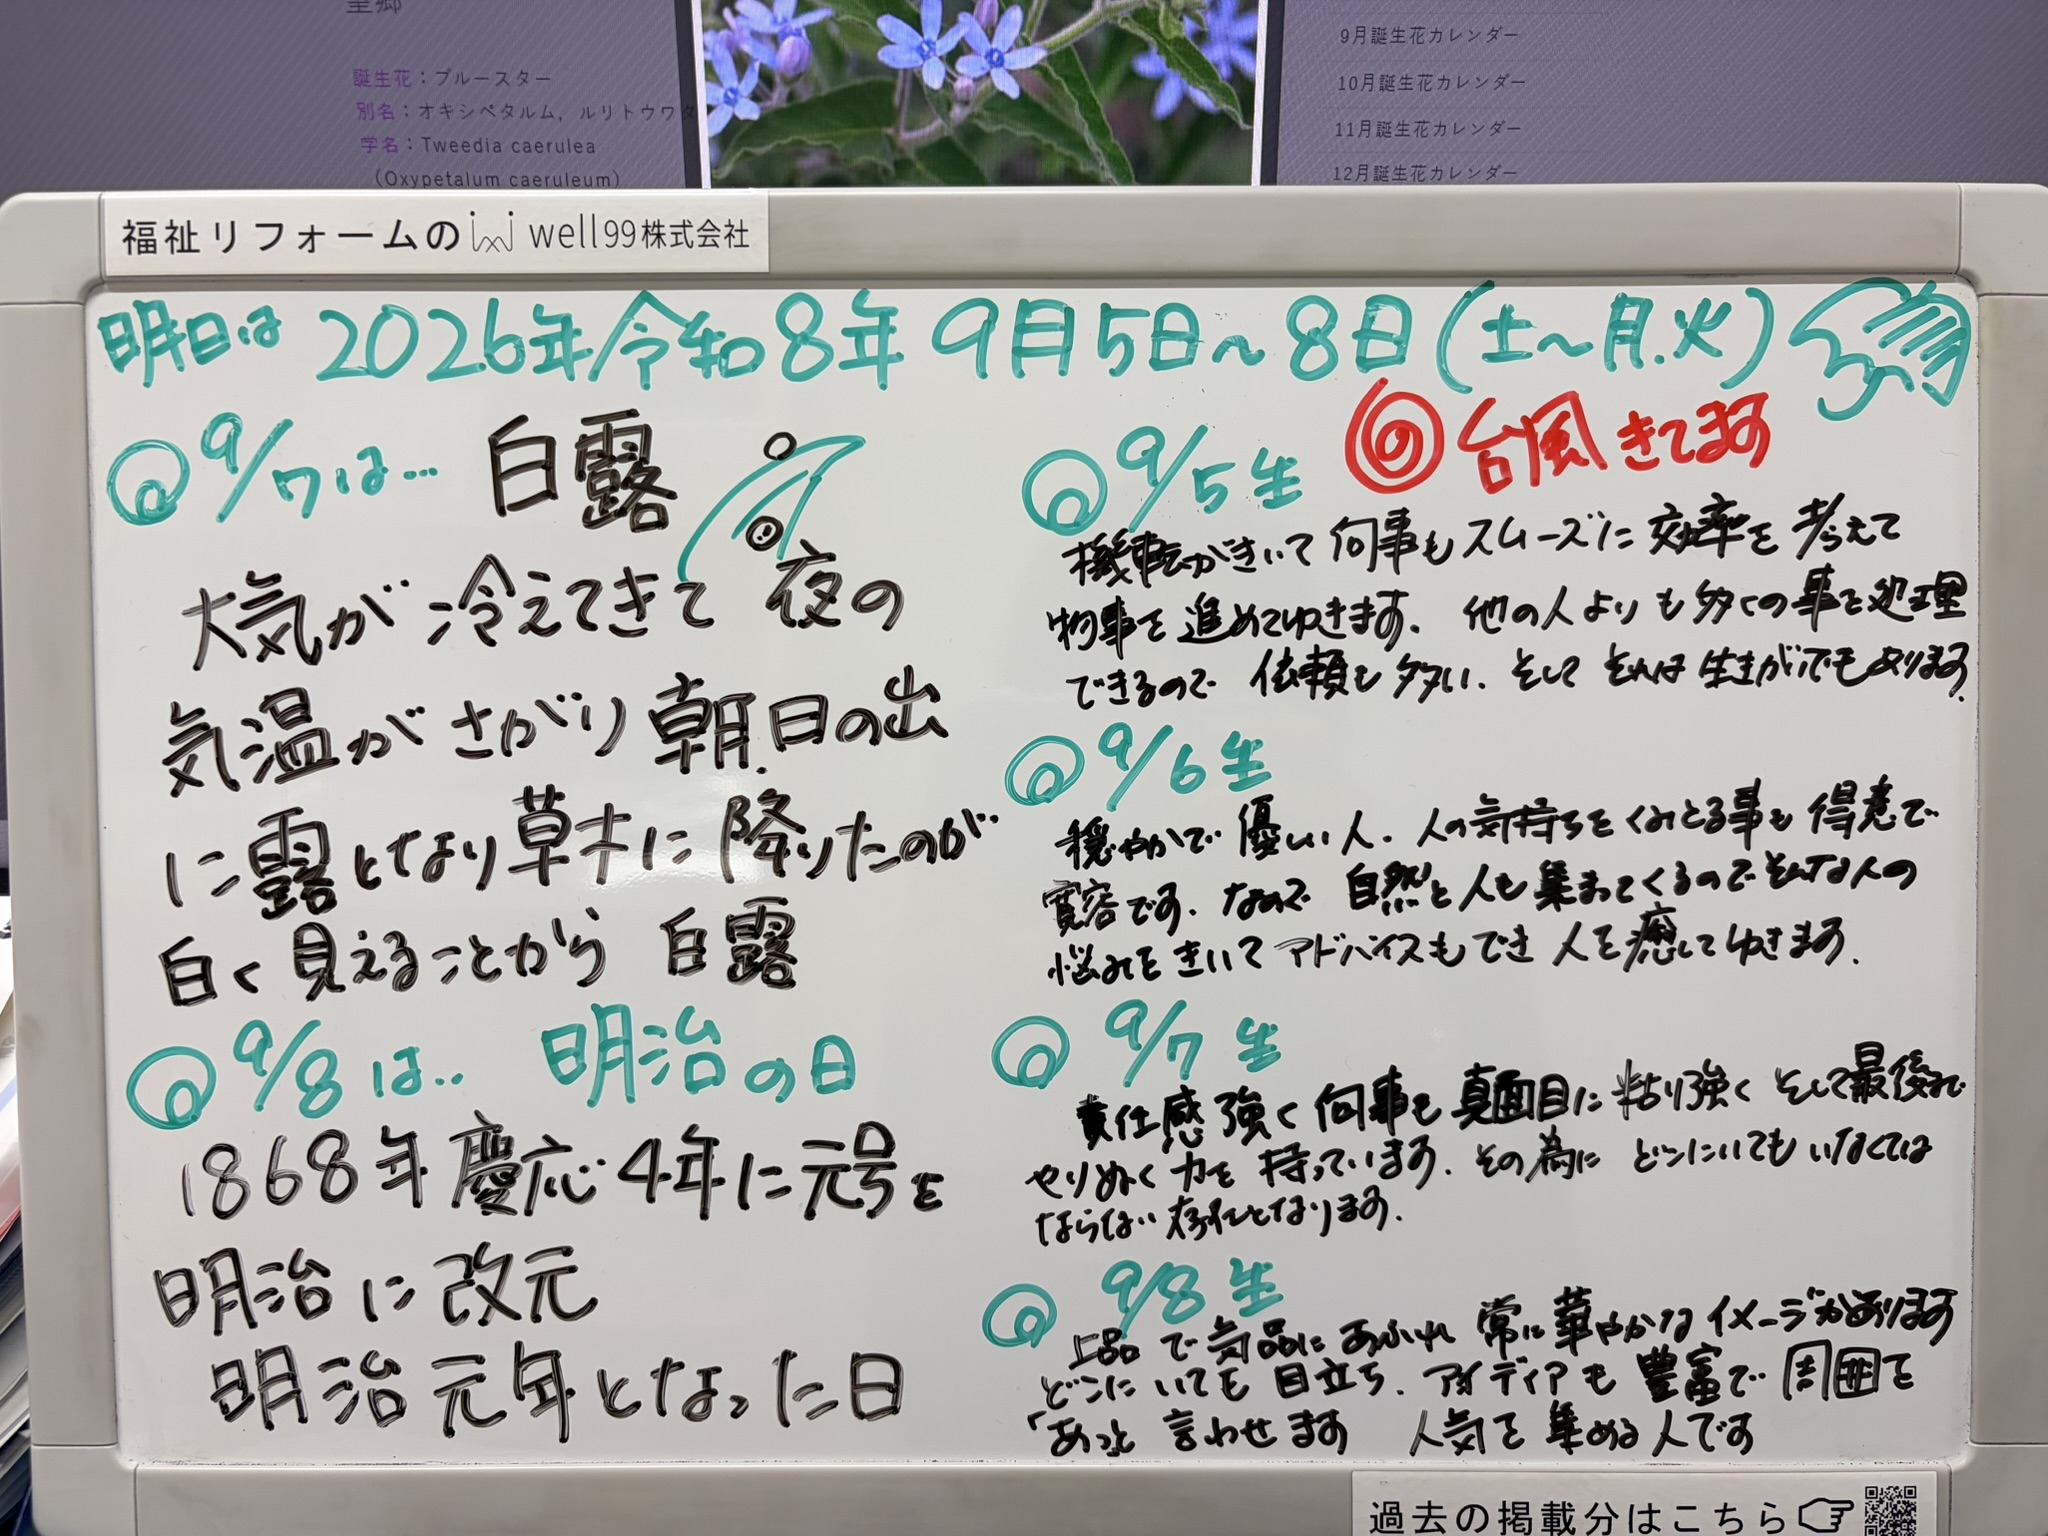 望郷
誕生花：ブルースター
別名：オキシペタルム，ルリトウワタ
学名：Tweedia caerulea
(Oxypetalum caeruleum)
9月誕生花カレンダー
10月誕生花カレンダー
11月誕生花カレンダー
12月誕生花カレンダー
福祉リフォームの well99株式会社
明日は 2026年令和8年 9月5日〜8日(土〜月.火)
台風きてます
9/7は… 白露
大気が冷えてきて 夜の
気温がさがり朝.日の出
に露となり草木に降りたのが
白く見えることから 白露
9/8は.. 明治の日
1868年慶応4年に元号を
明治に改元
明治元年となった日
9/5生
機転がきいて何事もスムーズに効率を考えて
物事を進めてゆきます. 他の人よりも多くの事を処理
できるので 依頼も多い. そして それは生きがいでもあります.
9/6生
穏やかで優しい人. 人の気持ちをくみとる事も得意で
寛容です. なので 自然と人も集まってくるのでそんな人の
悩みをきいてアドバイスもでき 人を癒してゆきます.
9/7生
責任感強く何事も真面目に粘り強く そして最後まで
やりぬく力を持っています. その為に どこにいてもいなくては
ならない存在となります.
9/8生
上品で気品にあふれ 常に華やかなイメージがあります
どこにいても目立ち. アイディアも豊富で周囲を
「あっと言わせます 人気を集める人です
過去の掲載分はこちら